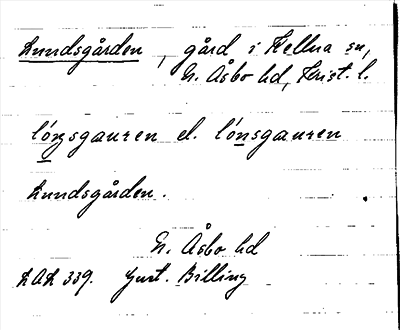 Lundsgården, gård i Hellna sn,
N. Åsbo hd, Krist. l.
lóṉsgauren el. lónsgauren
Lundsgården.
N. Åsbo hd
LAL 339. Gust. Billing